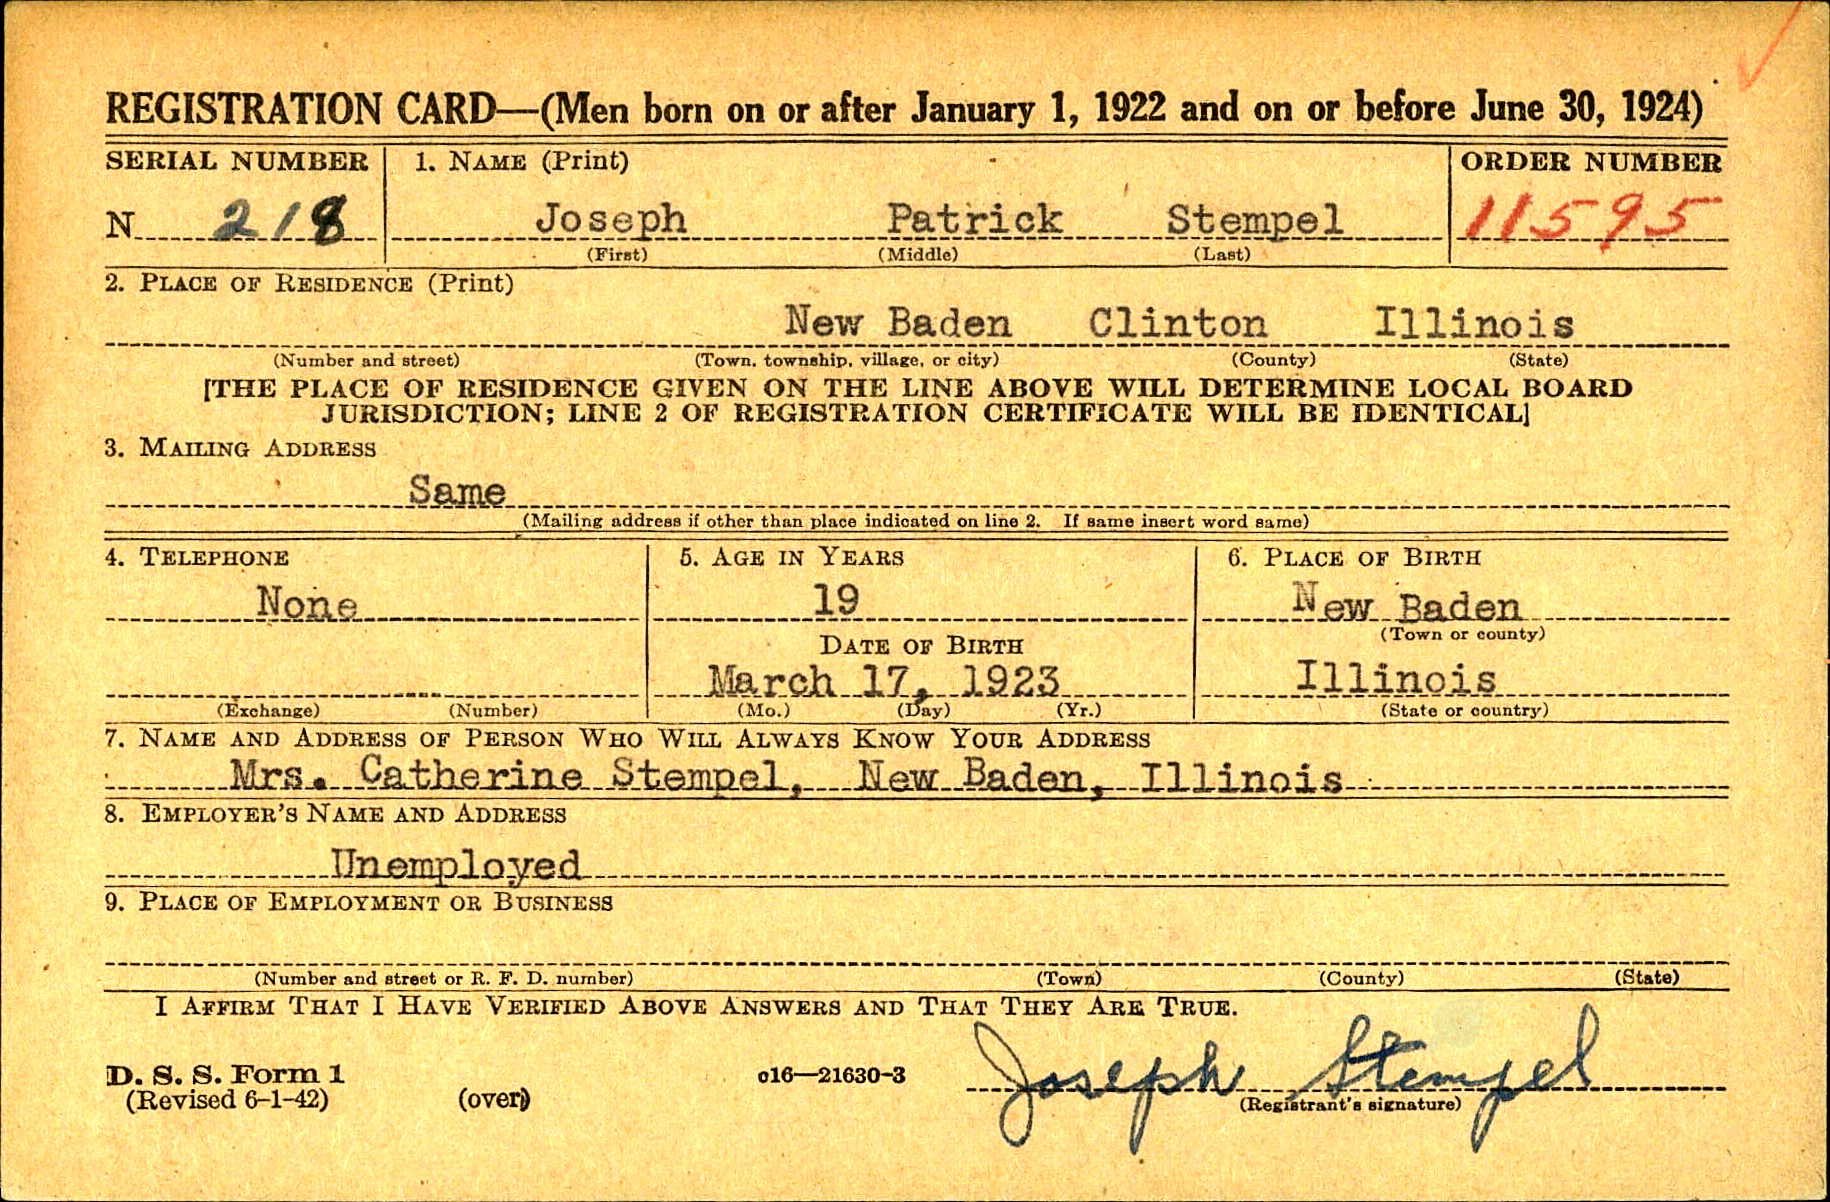 REGISTRATION CARD—(Men born on or after January 1, 1922 and on or before June 30, 1924)
SERIAL NUMBER 1. NAME (Print) ORDER NUMBER
N 218 Joseph Patrick Stempel 11595
(First) (Middle) (Last)
2. PLACE OF RESIDENCE (Print)
New Baden Clinton Illinois
(Number and street) (Town, township, village, or city) (County) (State)
[THE PLACE OF RESIDENCE GIVEN ON THE LINE ABOVE WILL DETERMINE LOCAL BOARD
JURISDICTION; LINE 2 OF REGISTRATION CERTIFICATE WILL BE IDENTICAL]
3. MAILING ADDRESS
Same
(Mailing address if other than place indicated on line 2. If same insert word same)
4. TELEPHONE 5. AGE IN YEARS 6. PLACE OF BIRTH
None 19 New Baden
DATE OF BIRTH (Town or county)
March 17, 1923 Illinois
(Exchange) (Number) (Mo.) (Day) (Yr.) (State or country)
7. NAME AND ADDRESS OF PERSON WHO WILL ALWAYS KNOW YOUR ADDRESS
Mrs. Catherine Stempel, New Baden, Illinois
8. EMPLOYER'S NAME AND ADDRESS
Unemployed
9. PLACE OF EMPLOYMENT OR BUSINESS
(Number and street or R. F. D. number) (Town) (County) (State)
I AFFIRM THAT I HAVE VERIFIED ABOVE ANSWERS AND THAT THEY ARE TRUE.
D. S. S. Form 1 c16—21630-3 Joseph Stempel
(Revised 6-1-42) (over) (Registrant's signature)